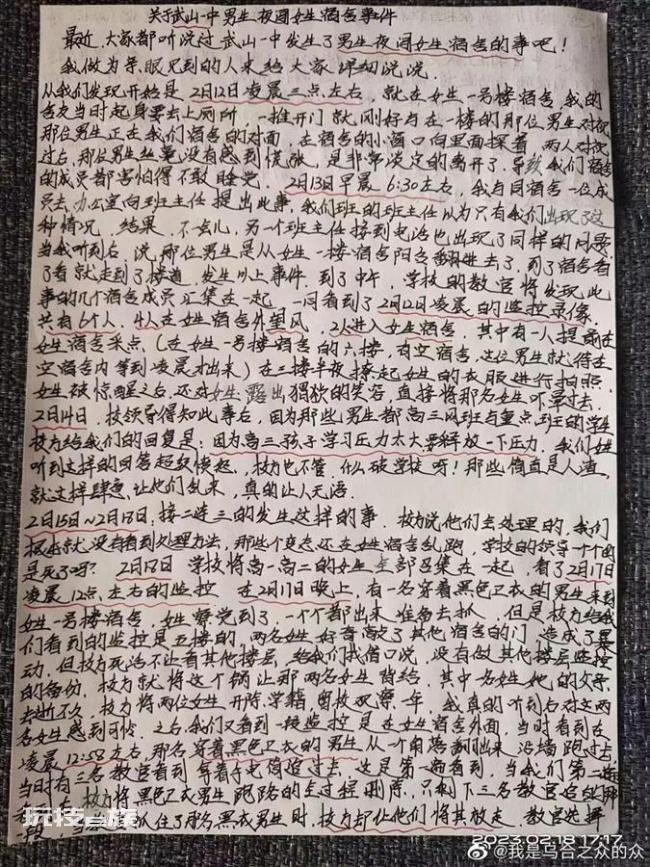 关于武山一中男生夜闯女生宿舍事件
最近,大家都听说过武山一中发生了男生夜闯女生宿舍的事吧!
我做为亲眼见到的人来给大家详细说说.
从我们发现开始是2月12日凌晨三点左右,就在女生一号楼宿舍,我的
舍友当时起身要去上厕所,一推开门就刚好与在一楼的那位男生对视
那位男生正在我们宿舍的对面,在宿舍的小窗口向里面探看,两人对视
过后,那位男生丝毫没有感到慌张,是非常淡定的离开了.导致我们宿舍
的成员都害怕得不敢睡觉.2月13日早晨6:30左右,我与同宿舍一位成
员去办公室向班主任提出此事,我们班的班主任以为只有我们出现了这
种情况,结果,不一会儿,另一个班主任接到电话也出现了同样的问题
当我听到后,说那位男生是从女生一楼宿舍阳台翻进去了,到了宿舍看
了看就走到了楼道,发生以上事件.到了中午,学校的教官将发现此
事的几个宿舍成员汇集在一起,一同看到了2月12日凌晨的监控录像,
共有6个人,4人在女生宿舍外望风,2人进入女生宿舍,其中有一人提前在
女生宿舍采点(在女生一号楼宿舍的六楼,有空宿舍,这位男生就待在
空宿舍内等到凌晨才出来)在三楼半夜撩起女生的衣服进行拍照,
女生被惊醒之后,还对女生露出猥琐的笑容,直接将那名女生吓晕过去.
2月14日,校领导得知此事后,因为那些男生都高三风班与重点班的学生
校方给我们的回复是:因为高三孩子学习压力太大要解放一下压力,我们女生
听到这样的回答超级愤怒,校方也不管,什么破学校呀!那些简直是人渣,
就这样肆意让他们乱来,真的让人无语.
2月15日~2月17日,接二连三的发生这样的事.校方说他们去处理的,我们
根本就没有看到处理方法,那些个变态还在女生宿舍乱跑,学校的领导一个个的
是死了呀?2月17日学校将高一高二的女生全部召集在一起,看了2月17日
凌晨12点左右的监控 在2月17日晚上,有一名穿着黑色卫衣的男生来到
女生一号楼宿舍,女生察觉到了,一个个都出来准备去抓,但是校方给我
们看到的监控是五楼的,两名女生好奇敲了其他宿舍的门,造成了暴
动,但校方死活不让看其他楼层,给我们找借口说,没有做其他楼层监控
的备份,校方就将这个锅让那两名女生背给,其中一名女生她的父亲
去逝不久,校方将两位女生开除学籍,留校观察一年,我真的听到后对这两
名女生感到可惜,之后,我们又看到一楼监控是在女生宿舍外面,当时看到在
凌晨12:58左右,那名穿着黑色卫衣的男生从一个角落翻出来,沿墙跑过去
当时有三名教官看到,拿着手电筒追过去,这是第一遍看到,当我们第二遍
校方将黑色卫衣男生跑路的全过程删除,只剩下三名教官追的那
段 抓住了那名黑衣男生时,校方却让他们将其放走,教官选择
玩技百族
2023.02.18 17:17
@我是乌合之众的众